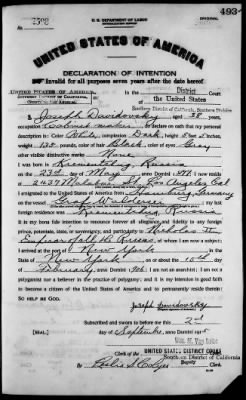 493
No. 7502
ORIGINAL
U. S. DEPARTMENT OF LABOR
NATURALIZATION SERVICE
UNITED STATES OF AMERICA
DECLARATION OF INTENTION
Invalid for all purposes seven years after the date hereof
UNITED STATES OF AMERICA, In the District Court
Southern District of California, Southern Division of the United States
I, Joseph Davidovsky, aged 38 years,
occupation Cabinet maker, do declare on oath that my personal
description is: Color White, complexion Dark, height 5 feet inches,
weight 135 pounds, color of hair Black, color of eyes Grey
other visible distinctive marks None
I was born in Russia
on the 23rd day of May, anno Domini ; I now reside
at 2437 St., Los Angeles Cal
I emigrated to the United States of America from Hamburg, Germany
on the vessel Graf Waldersee; my last
foreign residence was Russia
It is my bona fide intention to renounce forever all allegiance and fidelity to any foreign
prince, potentate, state, or sovereignty, and particularly to Nicholas II
Emperor of all the Russias, of whom I am now a subject; I
arrived at the port of New York, in the
State of New York, on or about the day
of February, anno Domini; I am not an anarchist; I am not a
polygamist nor a believer in the practice of polygamy; and it is my intention in good faith
to become a citizen of the United States of America and to permanently reside therein:
SO HELP ME GOD.
Joseph Davidovsky
Subscribed and sworn to before me this 2nd
[SEAL] day of September, anno Domini
Wm. M. Van Dyke
Clerk of the UNITED STATES DISTRICT COURT
Southern District of California
By Leslie S. Colyer Deputy Clerk.